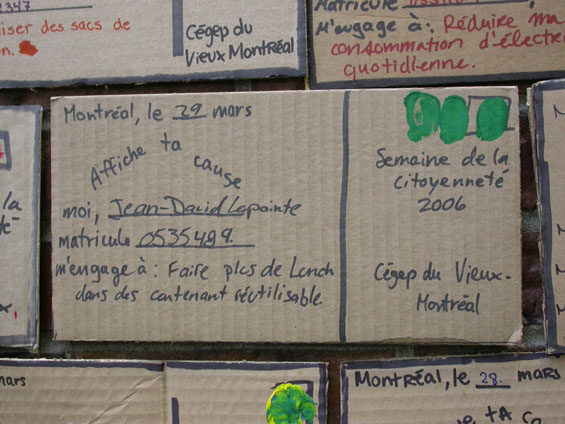 2347
iser des sacs de
on.
Cégep du
Vieux Montréal
Matricule
M'engage à: Réduire ma
consommation d'électr
quotidienne.
Montréal, le 29 mars
Affiche ta
cause
moi, Jean-David Lapointe
matricule 0535489.
m'engage à: Faire plus de Lunch
dans des contenant réutilisable
Semaine de la
Citoyenneté
2006
Cégep du Vieux-
Montréal
la
té-
x,
M
M
M
mars
Montréal, le 28. mars
e tA ca